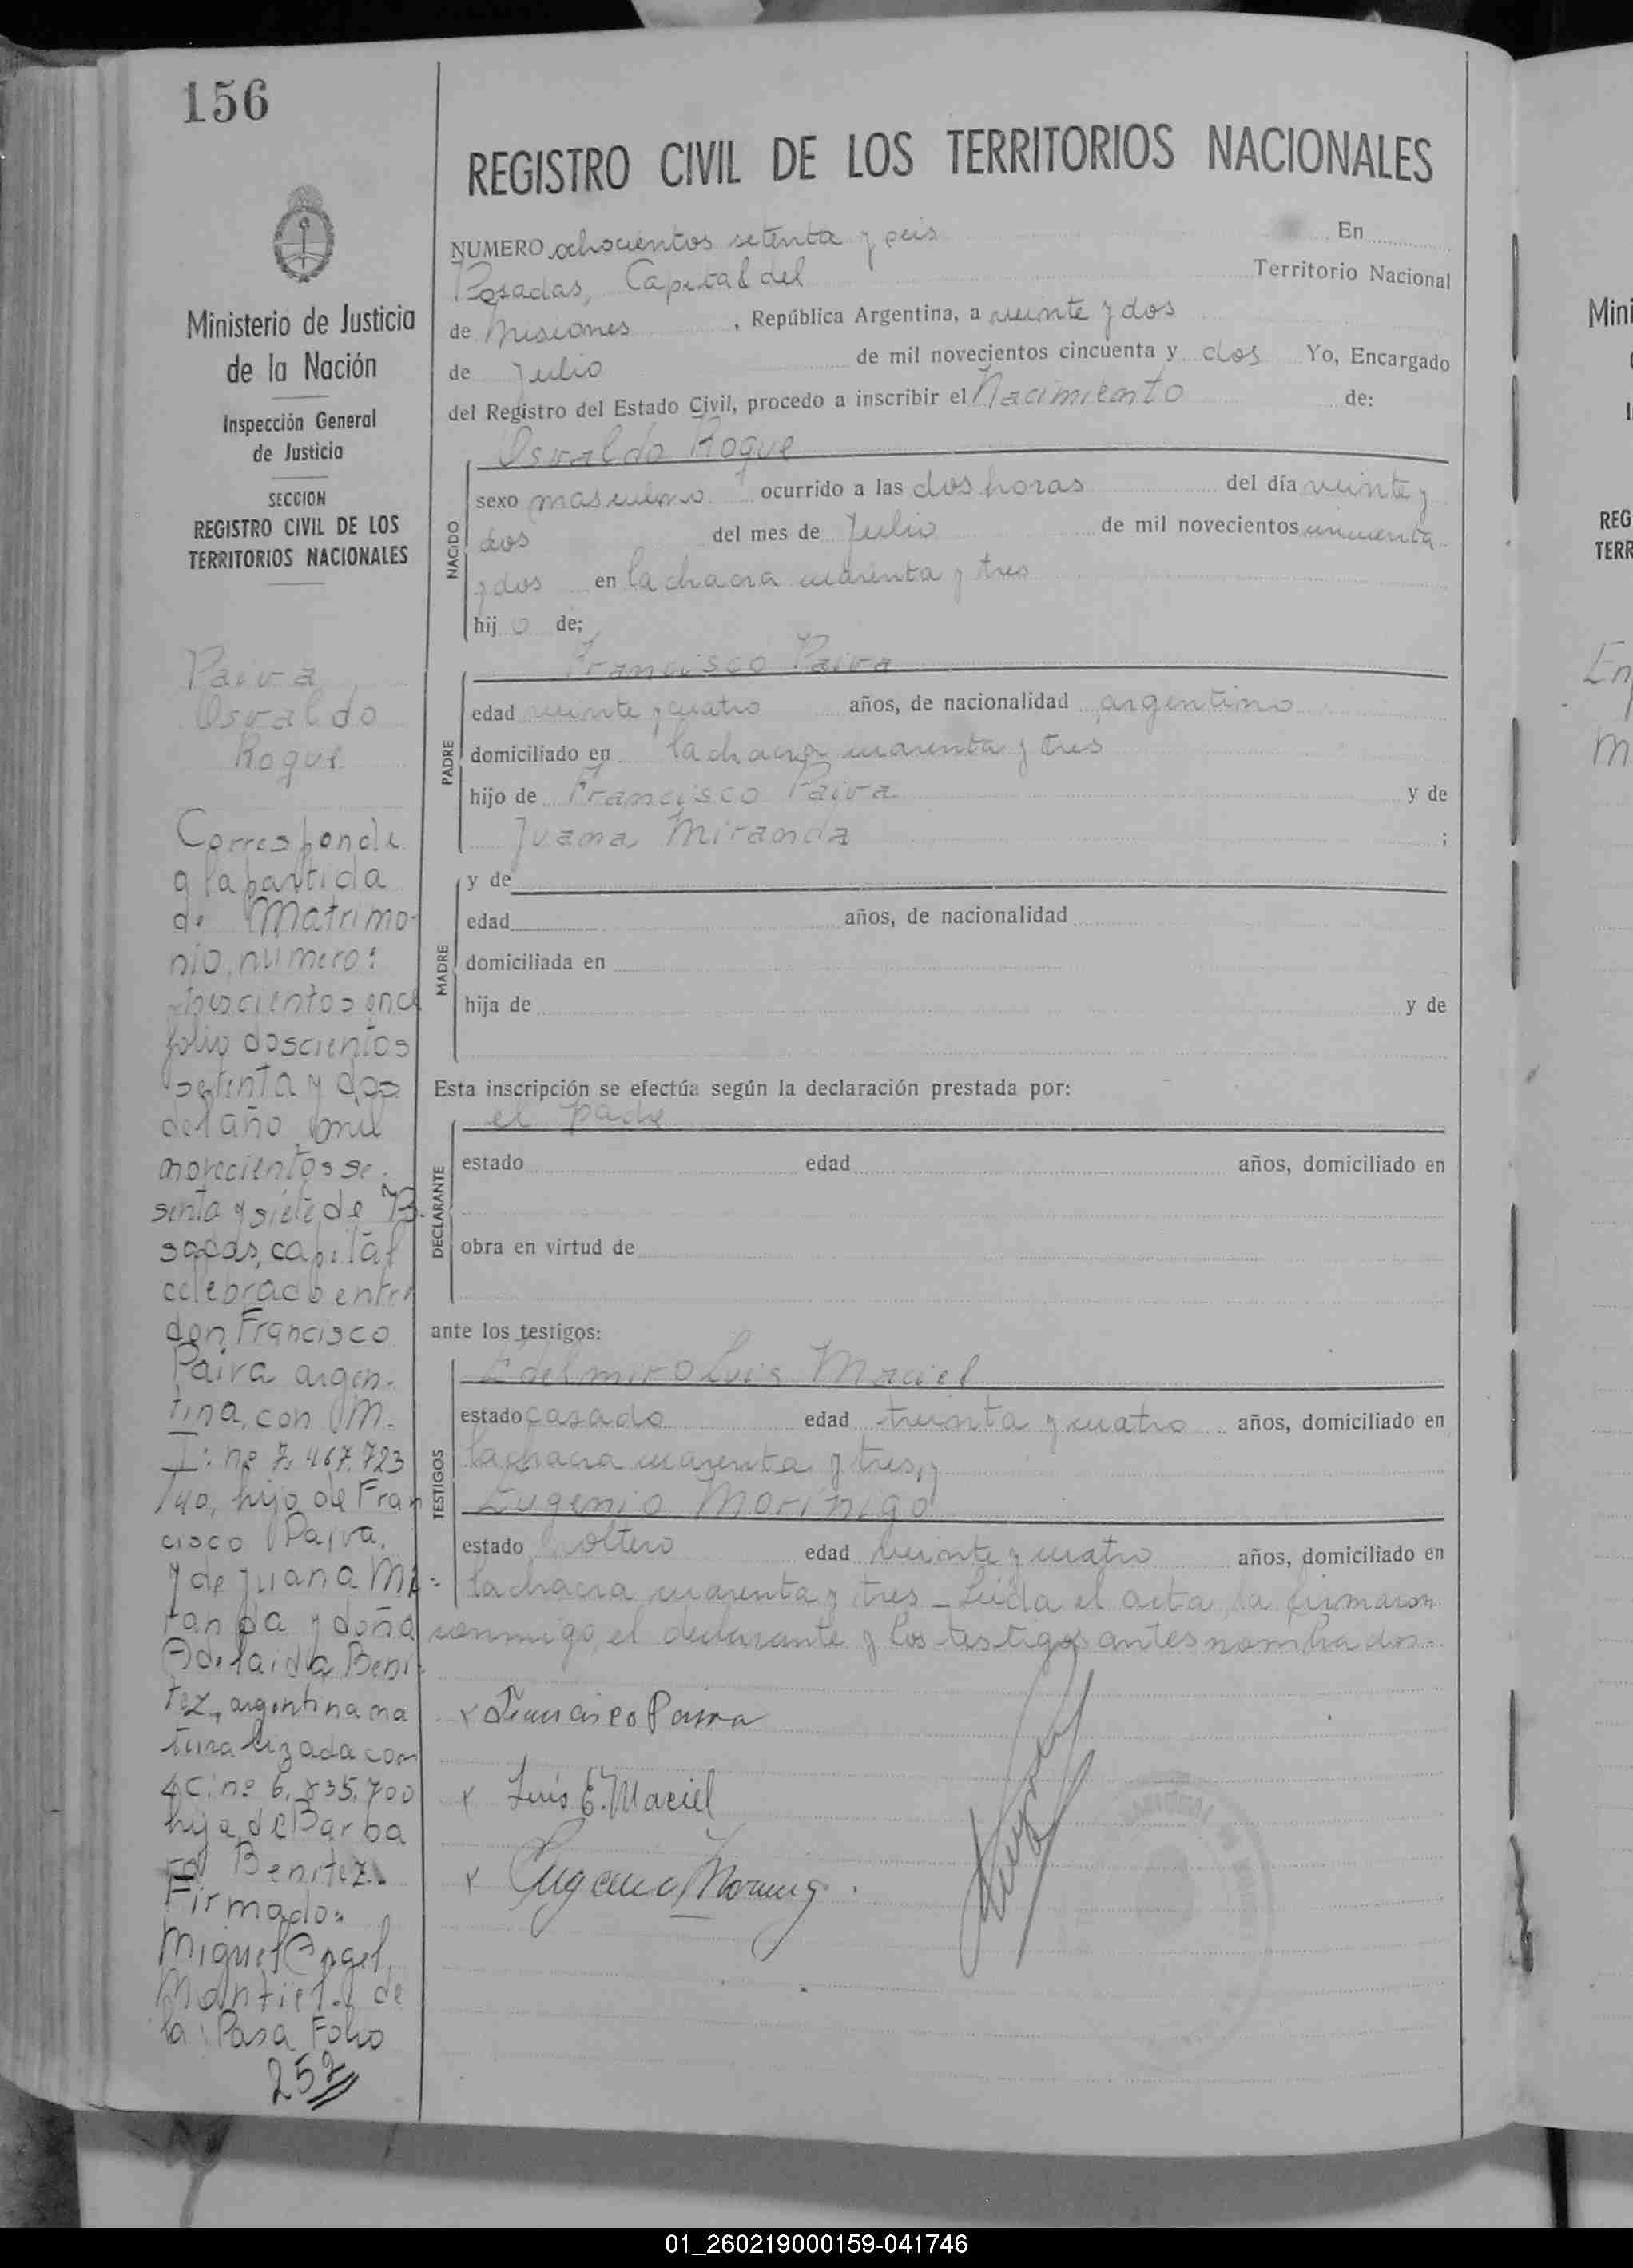 156
REGISTRO CIVIL DE LOS TERRITORIOS NACIONALES
Ministerio de Justicia
de la Nación
Inspección General
de Justicia
SECCION
REGISTRO CIVIL DE LOS
TERRITORIOS NACIONALES
Paiva
Osvaldo
Roque
Corresponde
a la partida
de Matrimo-
nio, número:
trescientos once
folio doscientos
setenta y dos
del año mil
novecientos se
senta y siete de Po
sadas, capital
celebrado entre
don Francisco
Paiva argen-
tina, con M.
I: nº 7.467.723
/40, hijo de Fran
cisco Paiva.
y de Juana Mi=
randa y doña
Adelaida Beni-
tez, argentina na
turalizada con
C: nº 6.835.700
hija de Barba
ra Benitez.
Firmado:
Miguel Angel
Montiel. de
la Pasa Folio
252
NUMERO ochocientos setenta y seis En
Posadas, Capital del Territorio Nacional
de Misiones , República Argentina, a veinte y dos
de Julio de mil novecientos cincuenta y dos Yo, Encargado
del Registro del Estado Civil, procedo a inscribir el Nacimiento de:
Osvaldo Roque
NACIDO
sexo masculino ocurrido a las dos horas del día veinte y
dos del mes de Julio de mil novecientos cincuenta
y dos en la chacra cuarenta y tres
hij o de;
Francisco Paiva
PADRE
edad veinte y cuatro años, de nacionalidad argentino
domiciliado en la chacra cuarenta y tres
hijo de Francisco Paiva y de
Juana Miranda ;
MADRE
y de
edad años, de nacionalidad
domiciliada en
hija de y de
Esta inscripción se efectúa según la declaración prestada por:
el padre
DECLARANTE
estado edad años, domiciliado en
obra en virtud de
ante los testigos:
Edelmiro Luis Maciel
TESTIGOS
estado casado edad treinta y cuatro años, domiciliado en
la chacra cuarenta y tres, y
Eugenio Morínigo
estado soltero edad veinte y cuatro años, domiciliado en
la chacra cuarenta y tres - Leida el acta la firmaron
conmigo, el declarante y los testigos antes nombrados.
x Francisco Paiva
x Luis E. Maciel
x Eugenio Morinig
Mini
REG
TERR
En
M
01_260219000159-041746